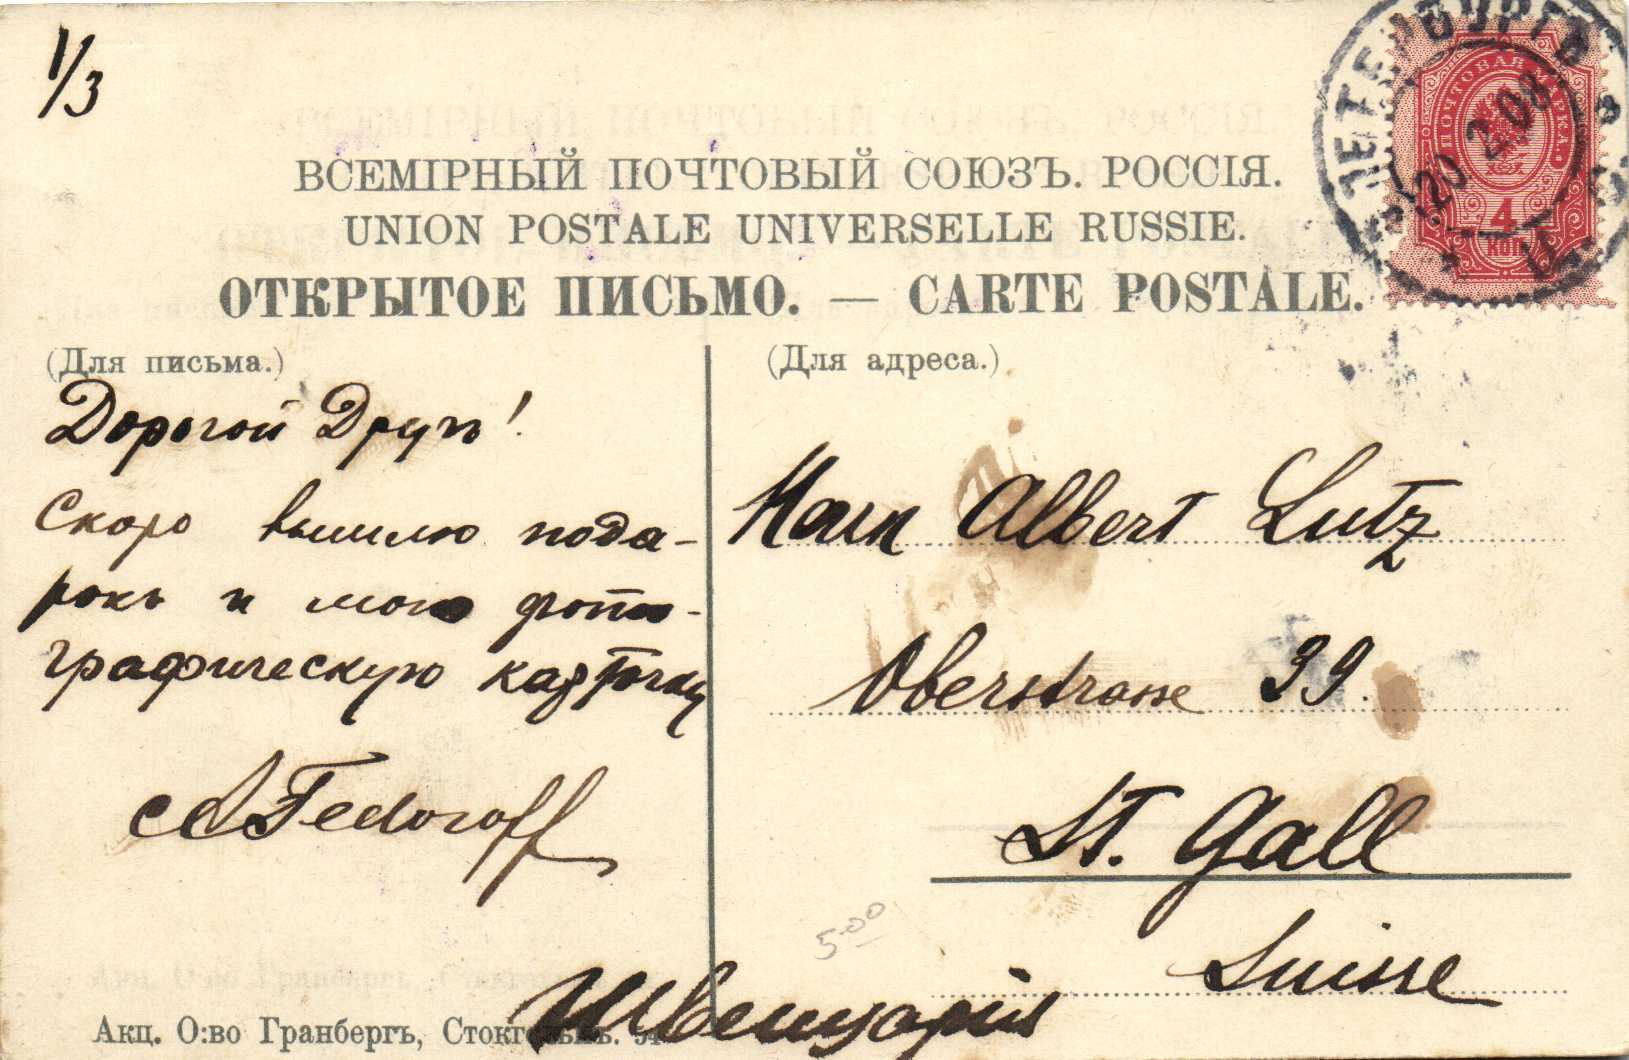 1/3
ПЕТЕРБУРГЪ
20 2 08
ПОЧТОВАЯ МАРКА.
4
КОП
ВСЕМІРНЫЙ ПОЧТОВЫЙ СОЮЗЪ. РОССІЯ.
UNION POSTALE UNIVERSELLE RUSSIE.
ОТКРЫТОЕ ПИСЬМО. — CARTE POSTALE.
(Для письма.)
Дорогой Другъ!
Скоро вышлю пода-
рокъ и мою фото-
графическую карточку
A Fedoroff
(Для адреса.)
Herrn Albert Lutz
Oberstrasse 39.
St. Gall
Suisse
5 00
Швейцарія
Акц. О:во Гранбергъ, Стокгольмъ.